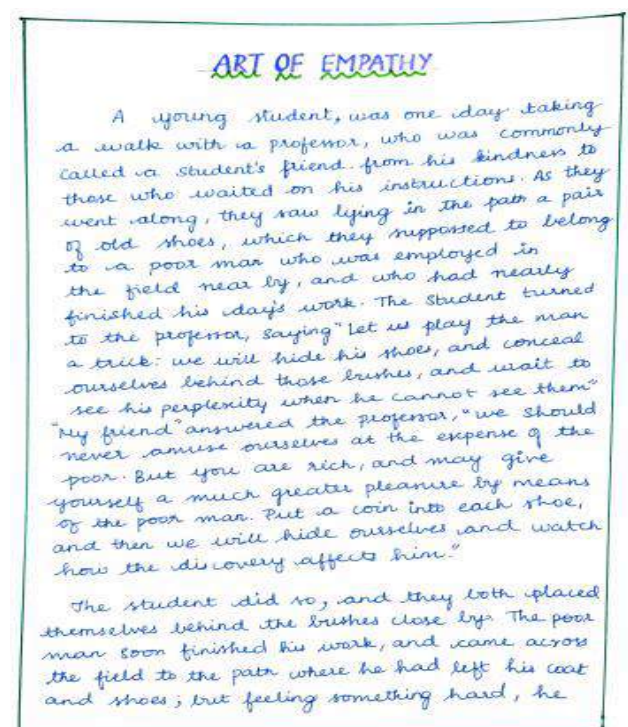 ART OF EMPATHY
A young student, was one day taking
a walk with a professor, who was commonly
called a student's friend from his kindness to
those who waited on his instructions. As they
went along, they saw lying in the path a pair
of old shoes, which they supposed to belong
to a poor man who was employed in
the field near by, and who had nearly
finished his day's work. The student turned
to the professor, saying "let us play the man
a trick: we will hide his shoes, and conceal
ourselves behind those bushes, and wait to
see his perplexity when he cannot see them"
"My friend" answered the professor, "we should
never amuse ourselves at the expense of the
poor. But you are rich, and may give
yourself a much greater pleasure by means
of the poor man. Put a coin into each shoe,
and then we will hide ourselves and watch
how the discovery affects him."
The student did so, and they both placed
themselves behind the bushes close by. The poor
man soon finished his work, and came across
the field to the path where he had left his coat
and shoes; but feeling something hard, he